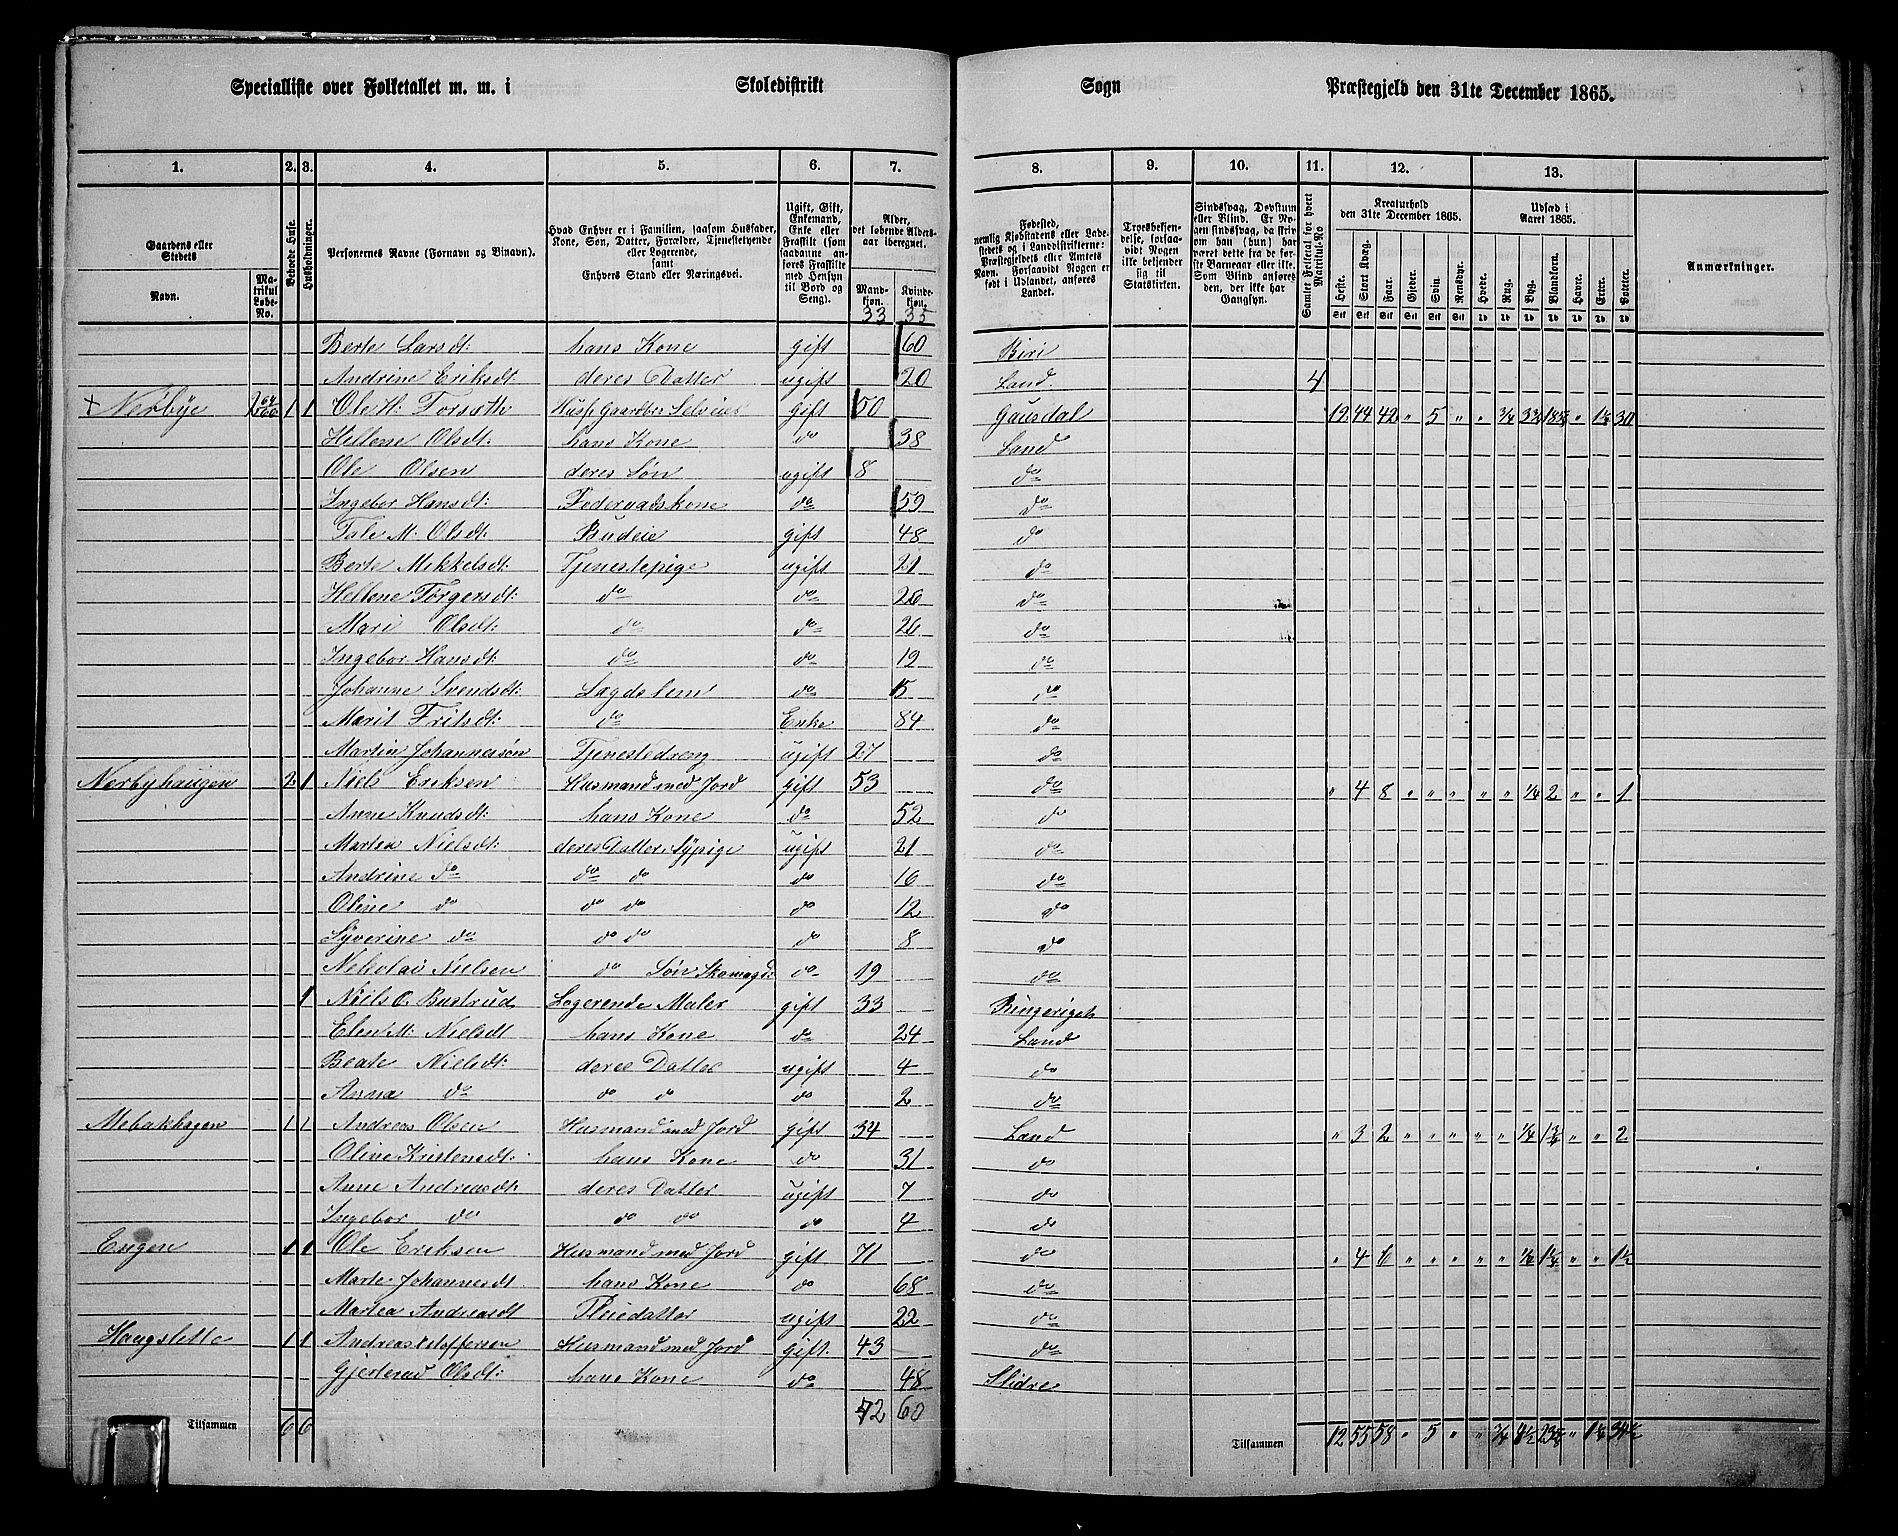 Specialliste over Folketallet m. m. i Skoledistrikt Sogn Præstegjeld den 31te December 1865.
1. 2. 3. 4. 5. 6. 7. 8. 9. 10. 11. 12. 13.
Gaardens eller Stedets Navn.
Matrikul Løbe-No.
Beboede Huse.
Husholdninger.
Personernes Navne (Fornavn og Binavn).
Hvad Enhver er i Familien, saasom Husfader, Kone, Søn, Datter, Forældre, Tjenestetyende eller Logerende, samt Enhvers Stand eller Næringsvei.
Ugift, Gift, Enkemand, Enke eller Fraskilt (som saadanne anføres Fraskilte med Hensyn til Bord og Seng).
Alder, det løbende Aldersaar iberegnet.
Mandkjøn. Kvindekjøn.
33 35
Fødested, nemlig Kjøbstadens eller Ladestedets og i Landdistrikterne: Præstegjeldets eller Amtets Navn. Forsaavidt Nogen er født i Udlandet, anføres Landet.
Troesbekjendelse, forsaavidt Nogen ikke bekjender sig til Statskirken.
Sindssvag, Døvstum eller Blind. Er Nogen sindssvag, da skriv om han (hun) har været dette fra de første Barneaar eller ikke. Som Blind anføres den, der ikke har Gangsyn.
Samlet Folketal for hvert Matrikul-No
Kreaturhold den 31te December 1865.
Heste. Stort Kvæg. Faar. Gjeder. Svin. Rensdyr.
Udsæd i Aaret 1865.
Hvede. Rug. Byg. Blandkorn. Havre. Erter. Poteter.
Anmærkninger.
Berte Larsdt: hans Kone gift 60 Biri
Andrine Eriksdt: deres Datter ugift 20 Land. 4
+ Nerbye 1 1 Ole H: Forsæth gift 50 Gausdal 12 44 42 " 5 " " 3/4 " 30
Hellene Olsdt: hans Kone do 38 Land
Ole Olsen deres Søn ugift 8 do
Ingebor Hansdt: Foderaadskone do 59 do
Tale M: Olsdt: Budeie gift 48 do
Berte Mikkelsdt: Tjenestepige ugift 21 do
Hellene Torgersdt: do do 26 do
Mari Olsdt: do do 26 do
Ingebor Hansdt: do do 19 do
Johanne Svendsdt: Lægdslem do 15 do
Marit Fritsdt: do Enke 84 do
Martin Johannessøn Tjenestedreng ugift 27 do
Nerbyhaugen 2 1 Niels Eriksen Husmand med Jord gift 53 do " 4 8 " " " " " 1/4 2 " " 1
Anne Knudsdt: hans Kone do 52 do
Martea Nielsdt: deres Datter, Sypige ugift 21 do
Andrine do do do do 16 do
Oline do do do do 12 do
Syverine do do do do 8 do
Nekolai Nielsen do Søn Skomagr: do 19 do
1 Niels O. Bustrud Logerende Maler gift 33 Ringeriget
Elen M: Nielsdt hans Kone do 24 Land
Beate Nielsdt: deres Datter ugift 4 do
Anna do do do do 2 do
Mebakhagen 1 1 Andreas Olsen Husmand med Jord gift 34 Land " 3 2 " " " " " 1/4 " " 2
Oline Kristensdt: hans Kone do 31 do
Anne Andreasdt: deres Datter ugift 7 do
Ingebor do do do do 4 do
Engen 1 1 Ole Eriksen Husmand med Jord gift 71 do " 4 6 " " " " " " " 1½
Marte Johannesdt hans Kone do 68 do
Martea Andreasdt Pleiedatter ugift 22 do
Haugslette 1 1 Andreas Kristoffersen Husmand med Jord gift. 43 do
Gjertrud Olsdt: hans Kone do 48 Slidre
Tilsammen 6 6 42 60
Tilsammen 12 55 58 " 5 " " 3/4 " 34½